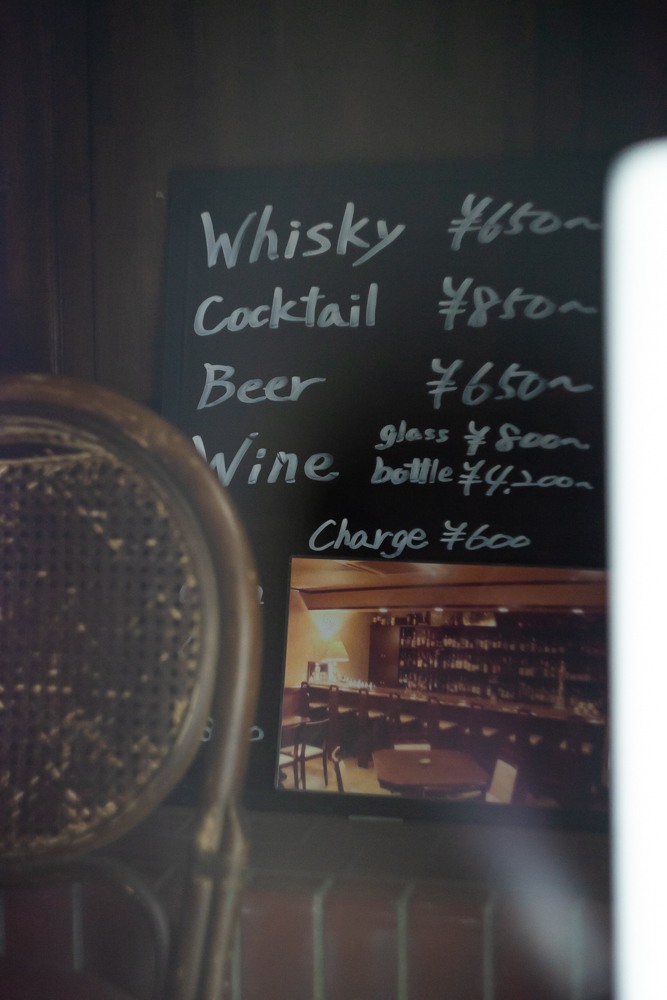 Whisky ¥650~
Cocktail ¥850~
Beer ¥650~
Wine glass ¥800~
bottle ¥4,200~
Charge ¥600